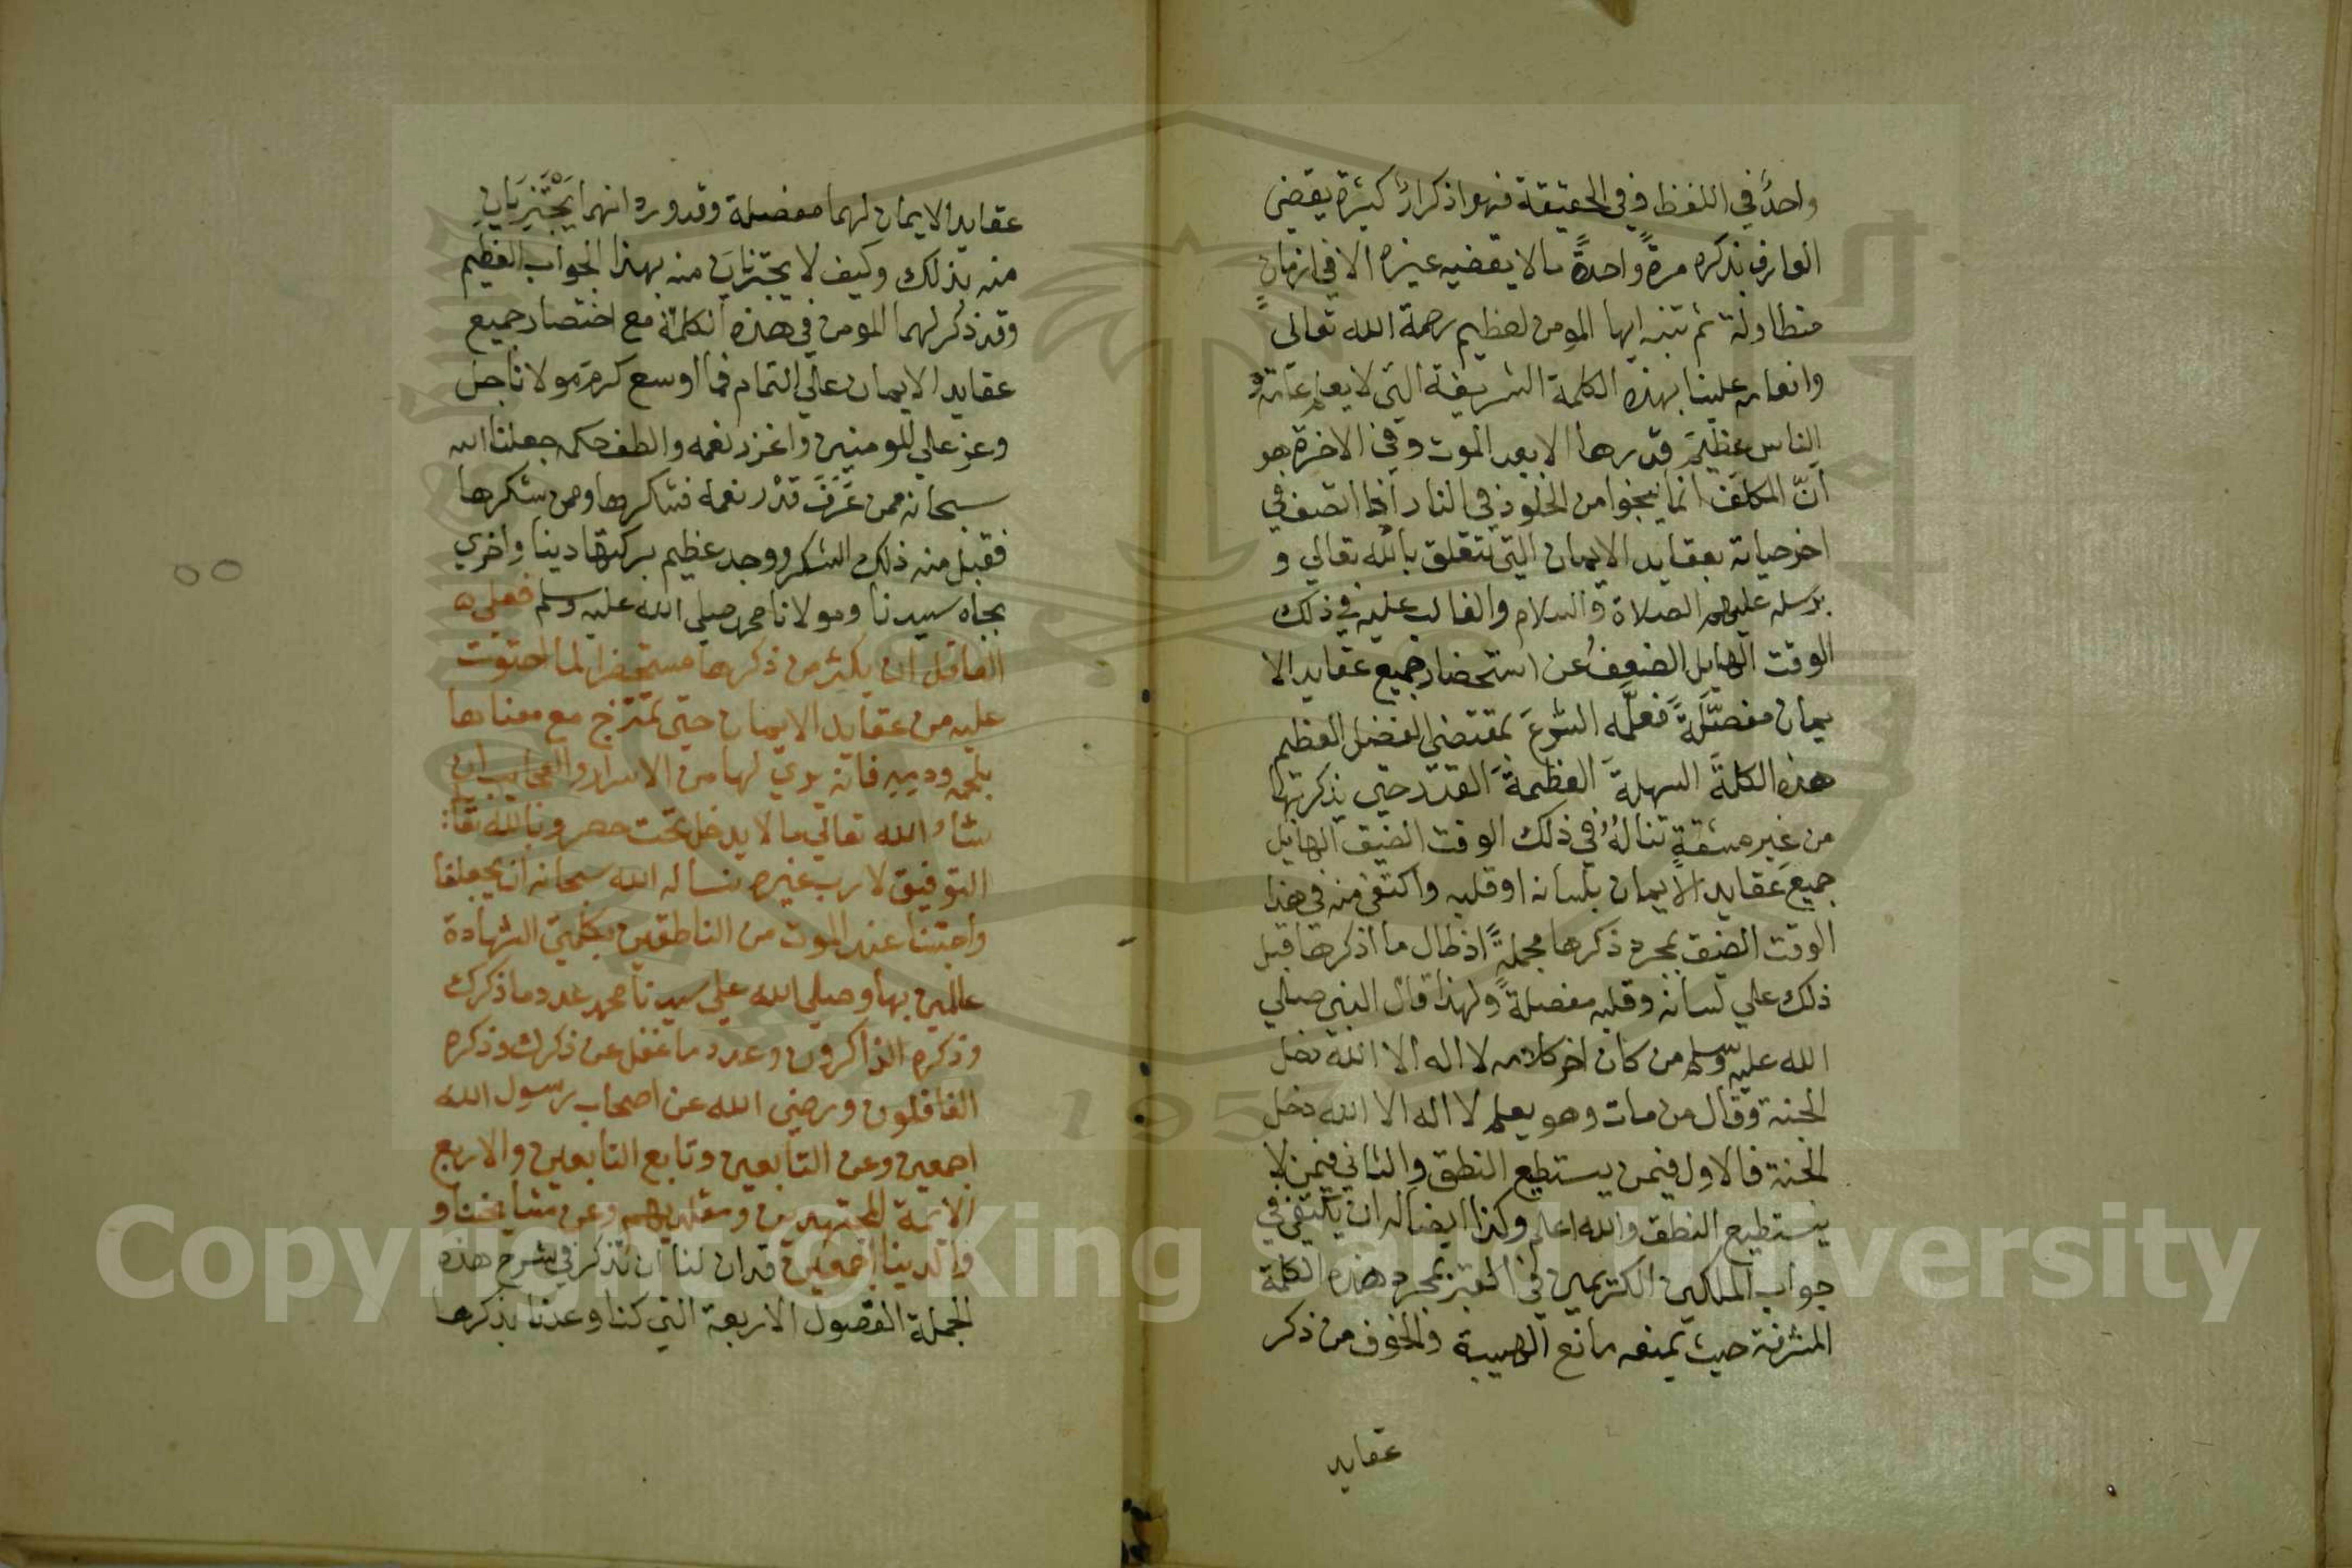 واحدٌ في اللفظ وفي الحقيقة فهو اذكارٌ كثيرة يقضي
العارف بذكره مرةً واحدةً مالا يقضيه غيره الا في ازمانٍ
متطاولة ثم تنبه ايها المومن لعظيم رحمة الله تعالى
وانعامه علينا بهذه الكلمة الشريفة التي لا يعلم عامّةُ
الناس عظيمَ قدرها الا بعد الموت وفي الاخرة هو
أنّ المكلف انما ينجوا من الخلود في النار اذا اتصف في
اخر حياته بعقايد الايمان التي تتعلق بالله تعالي و
برسله عليهم الصلاة والسلام والغالب عليه في ذلك
الوقت الهايل الضعفُ عن استحضار جميع عقايد الا
يمان مفصّلةً فعلّمه الشرعُ بمقتضي الفضل العظيم
هذه الكلمةَ السهلةَ العظيمةَ القدر حتي يذكر بها
من غير مشقةٍ تنالهُ في ذلك الوقت الضيق الهايل
جميعَ عقايد الايمان بلسانه او قلبه واكتفي منه في هذا
الوقت الضيق بمجرد ذكرها مجملةً اذ طال ما اذكرها قبل
ذلك علي لسانه وقلبه مفصلةً ولهذا قال النبي صلي
الله عليه وسلم من كان اخر كلامه لا اله الا الله دخل
الجنة وقال من مات وهو يعلم لا اله الا الله دخل
الجنة فالاول فيمن يستطيع النطق والثاني فيمن لا
يستطيع النطق والله اعلم وكذا ايضا له ان يكتفي في
جواب الملكين الكريمين في القبر بمجرد هذه الكلمة
المشرفة حيث يمنعه مانع الهيبة والخوف من ذكر
عقايد
عقايد الايمان لهما مفصلة وقد ورد انهما يَجْتَزِيَانِ
منه بذلك وكيف لا يجتزيانِ منه بهذا الجواب العظيم
وقد ذكر لهما المومن في هذه الكلمة مع اختصار جميع
عقايد الايمان علي التمام فما اوسع كرم مولانا جل
وعز علي المومنين واغزر نعمه والطف حكمه جعلنا الله
سبحانه ممن عَرَفَ قدْر نعمه فشكرها وممن شكرها
فقبل منه ذلك الشكر ووجد عظيم بركتها دينا واخري
بجاه سيدنا ومولانا محمد صلي الله عليه وسلم فعلي
العاقل ان يكثر من ذكرها مستحضرا لما احتوت
عليه من عقايد الايمان حتي تمتزج مع معناها
بلحمه ودمه فانه يري لها من الاسرار والعجايب ان
شاء الله تعالي ما لا يدخل تحت حصر وبالله تعا:
التوفيق لا رب غيره نساله الله سبحانه ان يجعلنا
واحبتنا عند الموت من الناطقين بكلمتي الشهادة
عالمين بها وصلي الله علي سيدنا محمد عدد ما ذكرك
وذكره الذاكرون وعدد ما غفل عن ذكرك وذكره
الغافلون ورضي الله عن اصحاب رسول الله
اجمعين وعن التابعين وتابع التابعين والاربع
الايمة المجتهدين ومقلديهم وعن مشايخنا و
والدينا اجمعين قد ان لنا ان نذكر في شرح هذه
الجملة الفصول الاربعة التي كنا وعدنا بذكرها
Copyright © King Saud University
1957